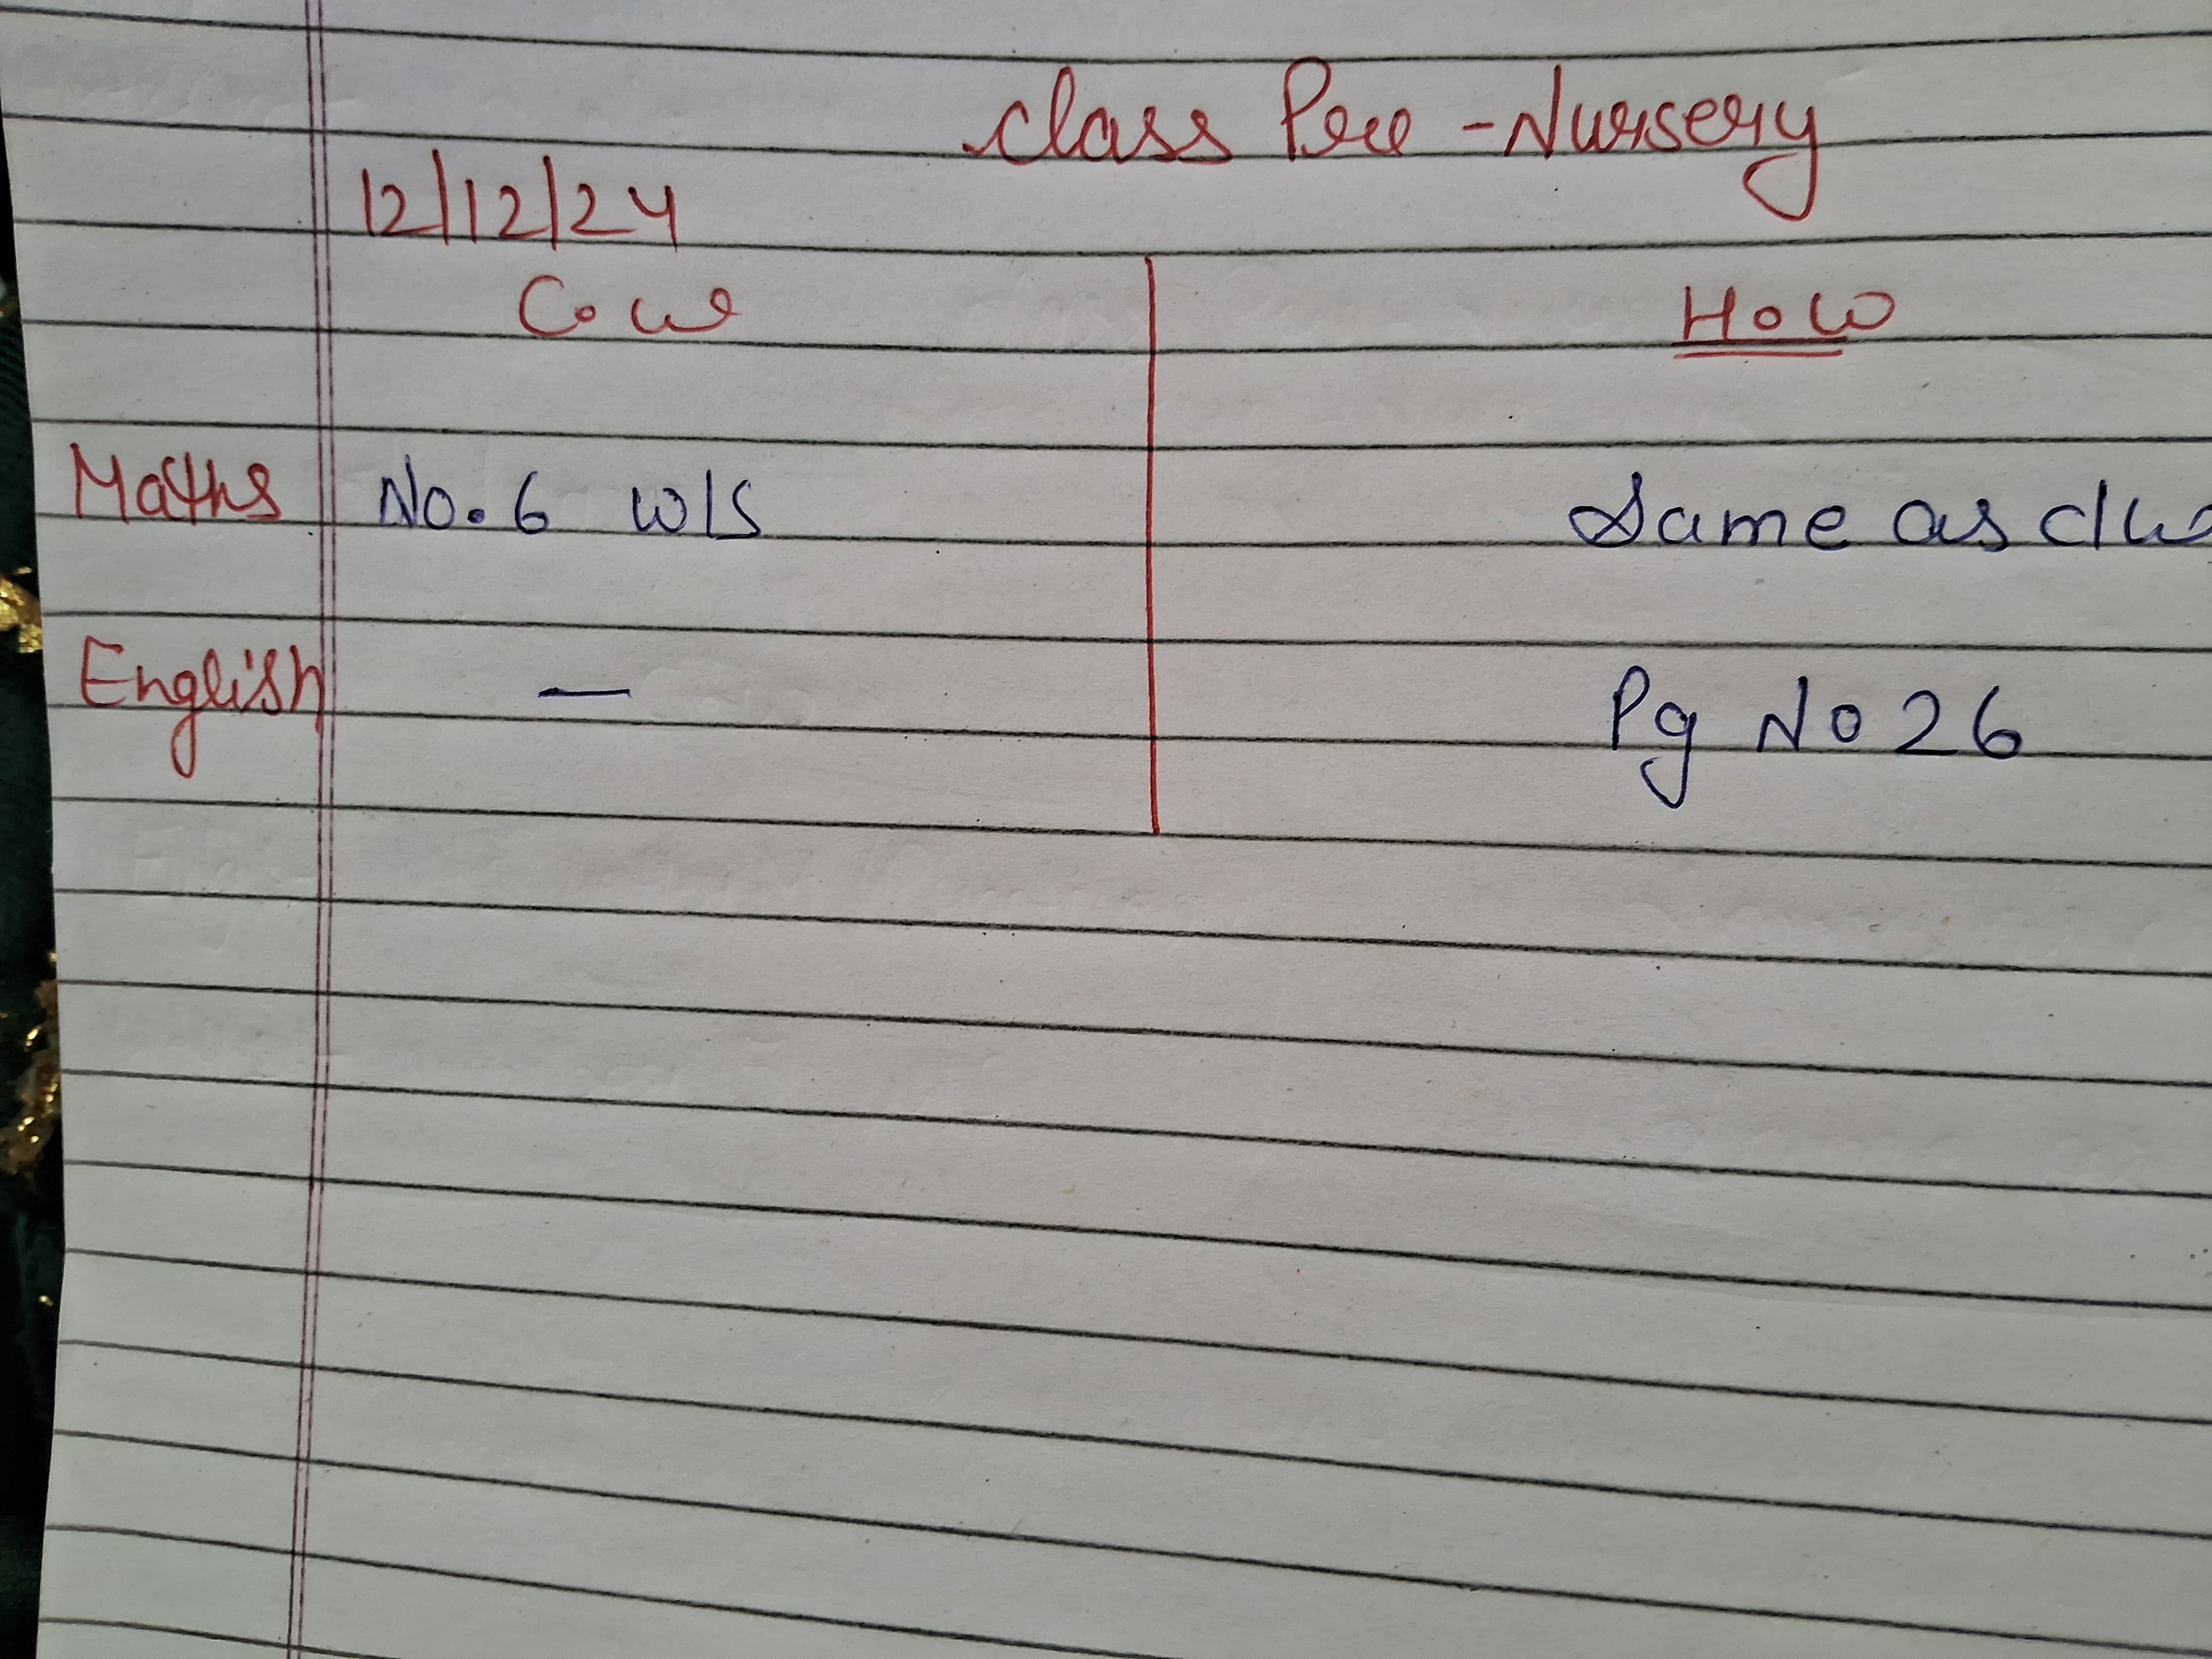 Class Pre-Nursery
12/12/24
C.W H.W
Maths No. 6 W/S Same as c/w
English — Pg No 26